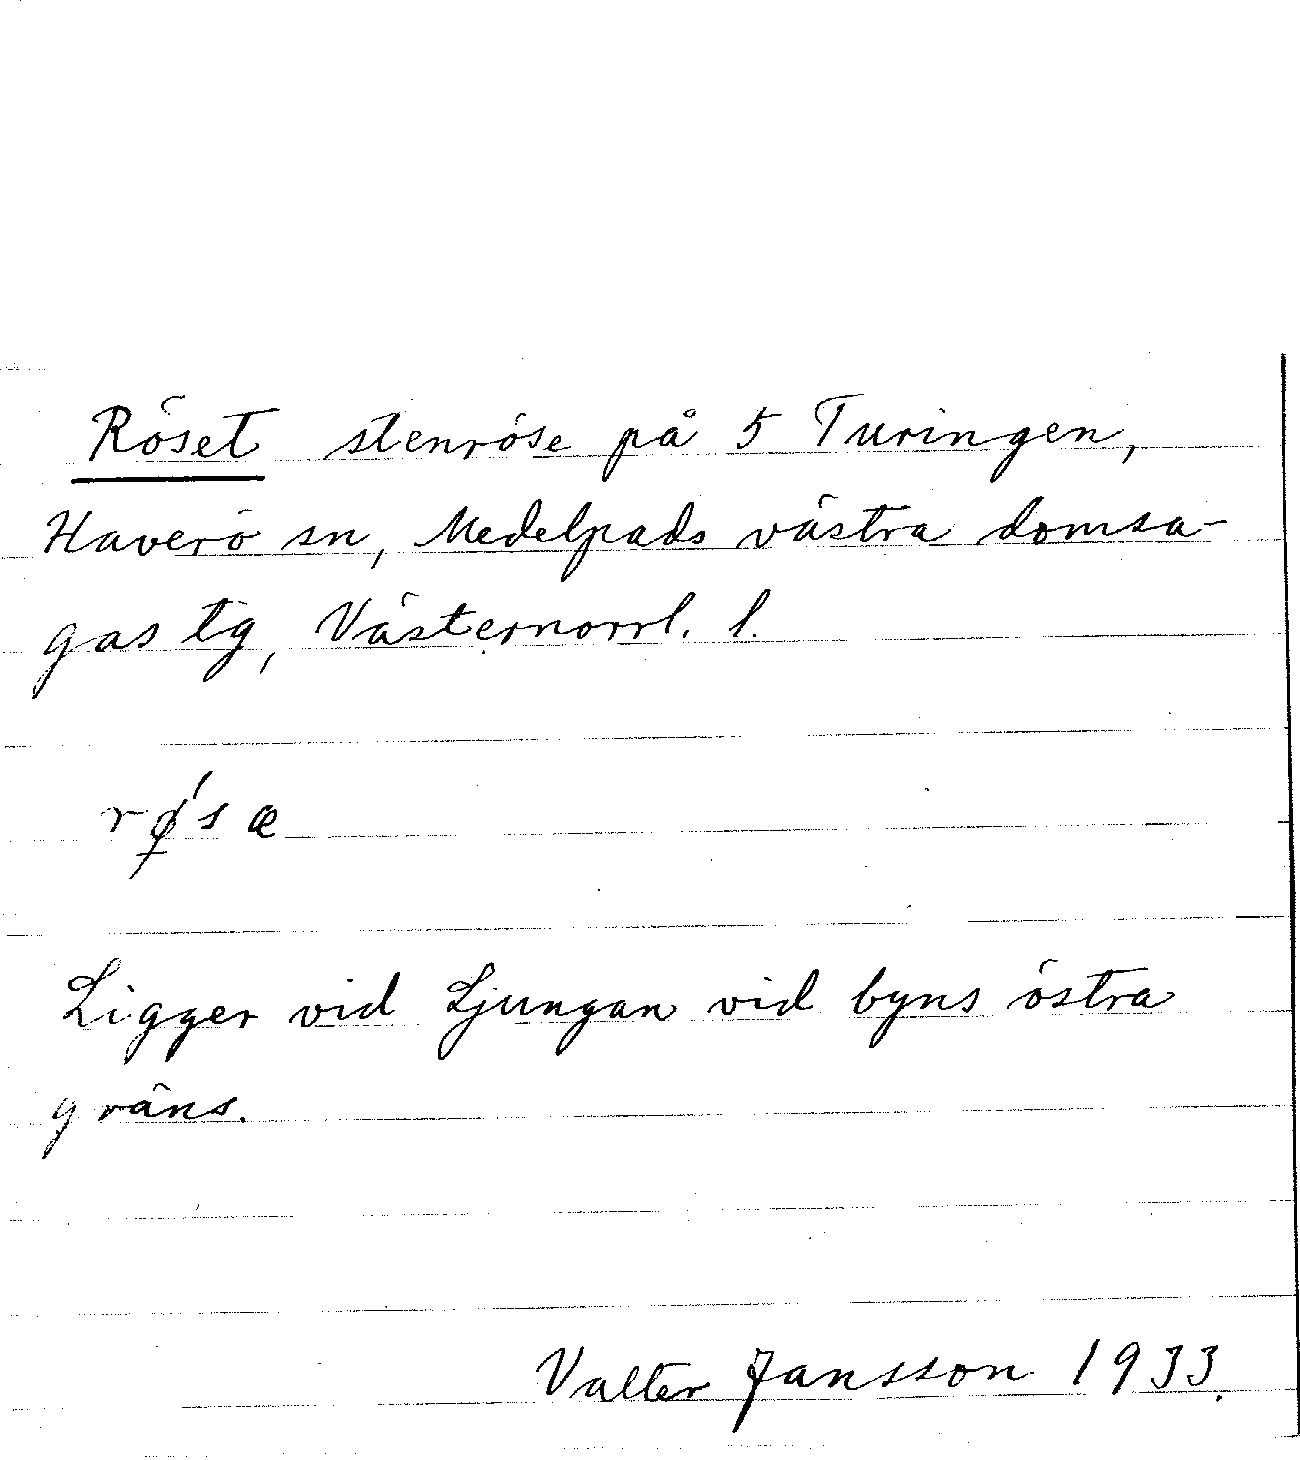 Röset stenröse på 5 Turingen,
Haverö sn, Medelpads västra domsa-
gas tg, Västernorrl. l.
rǿ̱sæ
Ligger vid Ljungan vid byns östra
gräns.
Valter Jansson 1933.